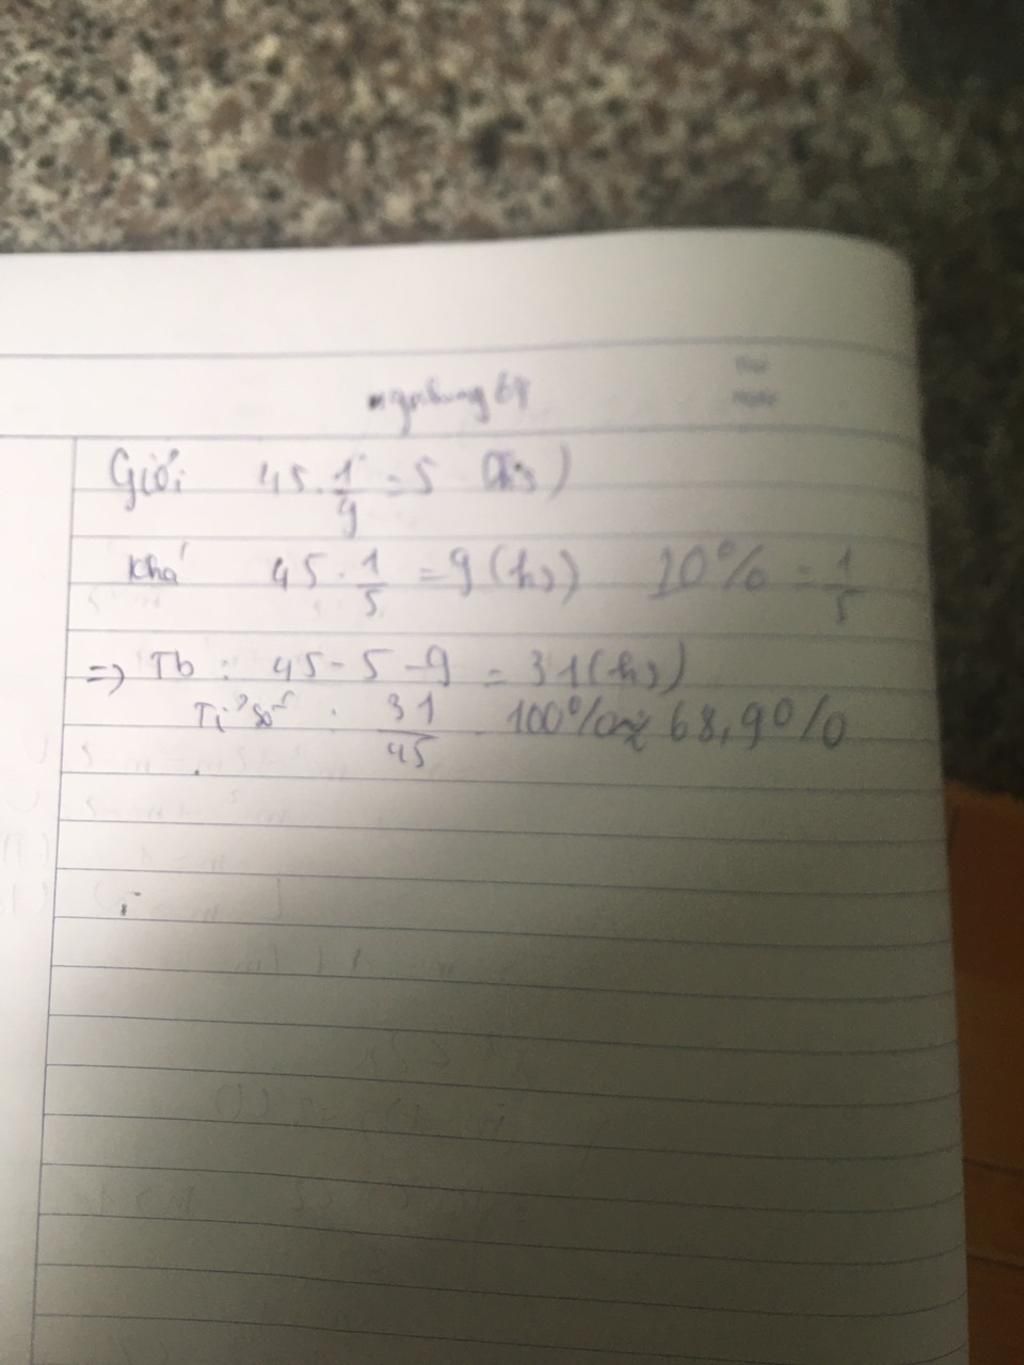 Giỏi 45 . 1/9 = 5 (hs)
Khá 45 . 1/5 = 9 (hs) 20% = 1/5
=> Tb : 45 - 5 - 9 = 31 (hs)
Tỉ số : 31/45 . 100% ≈ 68,9%